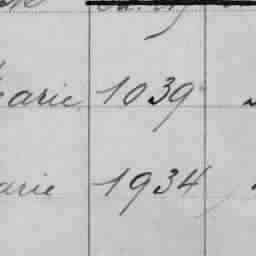 arie 1039
arie 1934